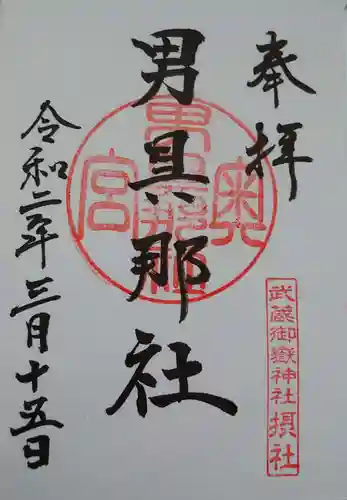 奉拝
武蔵御嶽神社摂社
男具那社
奥
宮
令和二年三月十五日